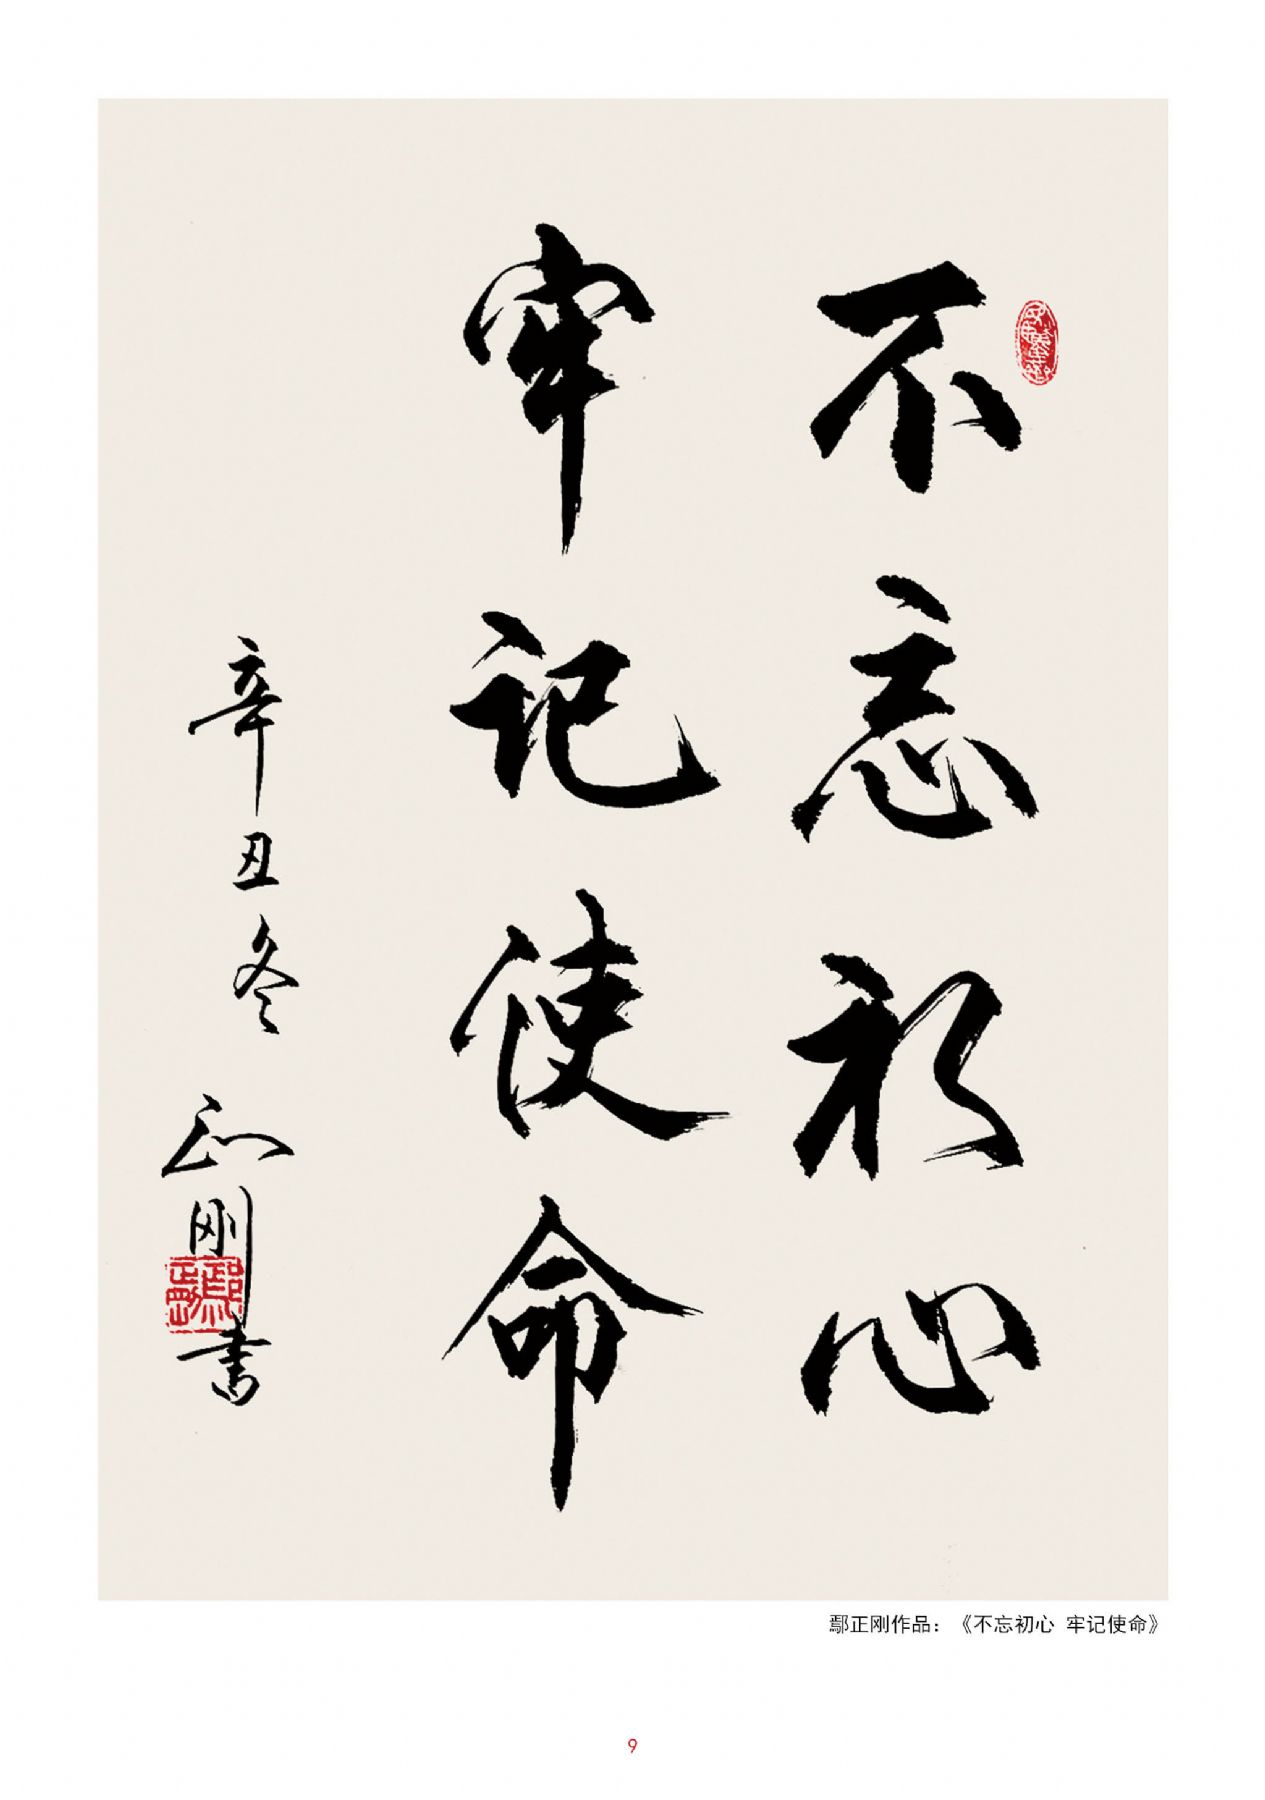 不忘初心
牢记使命
辛丑冬
正刚书
鄢正刚作品：《不忘初心 牢记使命》
9